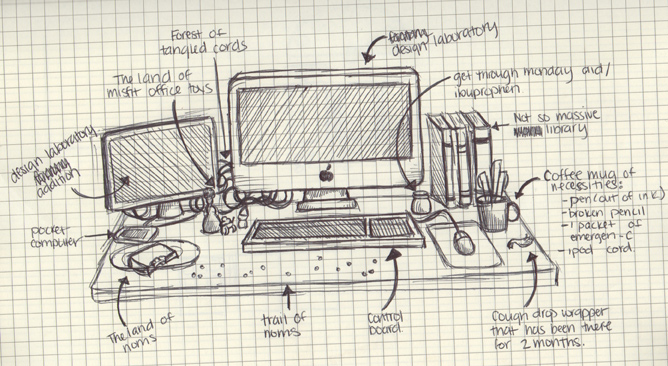 Forest of
tangled cords
design laboratory
The land of
misfit office toys
get through monday aid/
ibuprophen
Not so massive
library
design laboratory
addition
Coffee mug of
necessities:
- pen (out of ink)
- broken pencil
- 1 packet of
emergen-C
- ipod cord
pocket
computer
The land of
noms
trail of
noms
Control
board
Cough drop wrapper
that has been there
for 2 months.